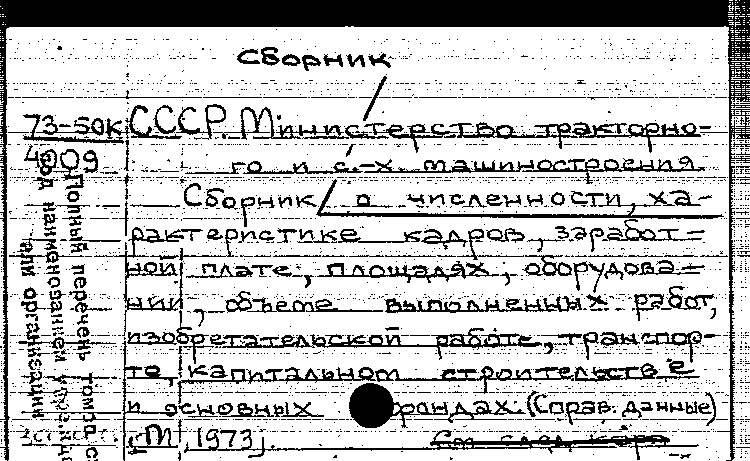 Сборник
73-50к СССР. Министерство тракторно-
4909 го и с.-х. машиностроения
Сборник о численности, ха-
рактеристике кадров, заработ=
ной плате, площадях, оборудова=
нии, объеме выполненных работ,
изобретательской работе, транспор-
те, капитальном строительстве
и основных фондах. (Справ. данные)
М, 1973.
См след карт
Полный перечень томов с
под наименованием
или организации